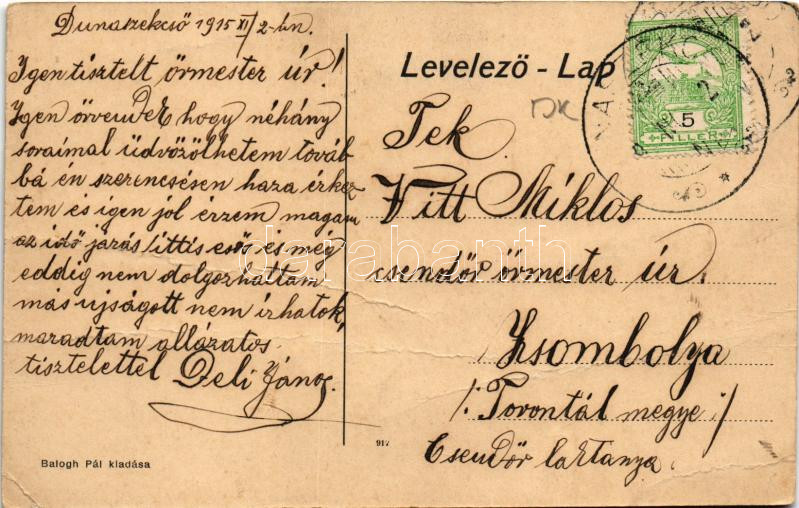 Dunaszekcső 1915 XI/2-án.
Igen tisztelt örmester úr!
Igen örvendek hogy néhány
soraímal üdvözölhetem továb
bá én szerencsésen haza érkez
tem és igen jól érzem magam
az idő járás ittis esős és még
eddig nem dolgozhattam
más ujságott nem írhatok,
maradtam allázatos
tisztelettel Deli János.
Balogh Pál kiadása
917
Levelező - Lap
Tek.
Vitt Miklos
csendör örmester úr.
Zsombolya
/: Torontál megye :/
Csendör laktanya.
5
FILLER
darabanth